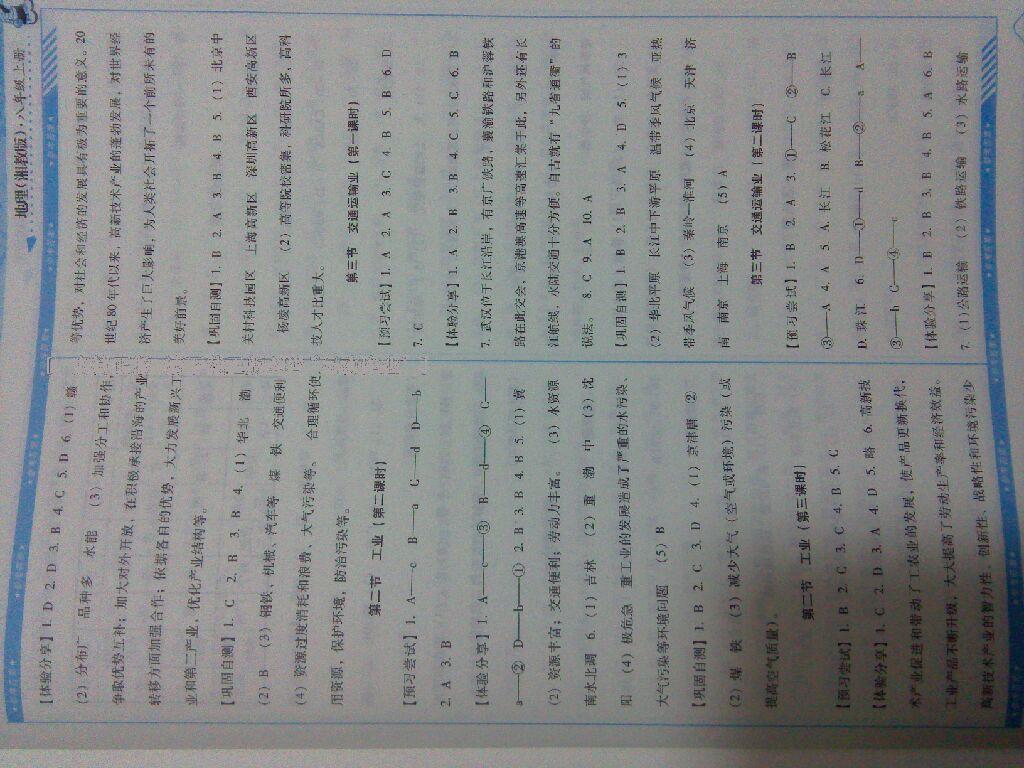 地理(湘教版)·八年级上册
【体验分享】1. D 2. D 3. B 4. C 5. D 6. (1) 赣
(2) 分布广 品种多 水能 (3) 加强分工和协作,
争取优势互补;加大对外开放,在积极承接沿海的产业
转移方面加强合作;依据各自的优势,大力发展新兴工
业和第三产业,优化产业结构等。
【巩固自测】1. C 2. B 3. B 4. (1) 华北 渤
(2) B (3) 钢铁、机械、汽车等 煤 铁 交通便利
(4) 资源过度消耗和浪费、大气污染等。 合理循环使
用资源,保护环境,防治污染等。
第二节 工业 (第二课时)
【预习尝试】1. A——c B——a C——d D——b
2. A 3. B
【体验分享】1. A——c——③ B——d——④ C——
a——② D——b——① 2. B 3. B 4. B 5. (1) 冀
(2) 资源丰富;交通便利;劳动力丰富。 (3) 水资源
南水北调 6. (1) 吉林 (2) 重 渤 中 (3) 沈
阳 (4) 极危急 重工业的发展造成了严重的水污染、
大气污染等环境问题 (5) B
【巩固自测】1. B 2. C 3. D 4. (1) 京津唐 (2)
(2) 煤 铁 (3) 减少大气 (空气或环境) 污染 (或
提高空气质量)。
第二节 工业 (第三课时)
【预习尝试】1. B 2. C 3. C 4. B 5. C
【体验分享】1. C 2. D 3. A 4. D 5. 略 6. 高新技
术产业促进和带动了工农业的发展,使产品更新换代,
工业产品不断升级,大大提高了劳动生产率和经济效益。
高新技术产业的智力性、创新性、战略性和环境污染少
等优势,对社会和经济的发展具有极为重要的意义。20
世纪80年代以来,高新技术产业的蓬勃发展,对世界经
济产生了巨大影响,为人类社会开拓了一个前所未有的
美好前景。
【巩固自测】1. B 2. A 3. B 4. B 5. (1) 北京中
关村科技园区 上海高新区 深圳高新区 西安高新区
杨凌高新区 (2) 高等院校密集,科研院所多,高科
技人才比重大。
第三节 交通运输业 (第一课时)
【预习尝试】1. A 2. A 3. C 4. B 5. B 6. D
7. C
【体验分享】1. A 2. B 3. B 4. C 5. C 6. B
7. 武汉位于长江沿岸,有京广铁路,襄渝铁路和沪蓉铁
路在此交会,京港澳高速等高速汇集于此,另外还有长
江航线,水陆交通十分方便。自古就有“九省通衢”的
说法。 8. C 9. A 10. A
【巩固自测】1. B 2. B 3. A 4. D 5. (1) 3
(2) 华北平原 长江中下游平原 温带季风气候 亚热
带季风气候 (3) 秦岭—淮河 (4) 北京 天津 济
南 南京 上海 南京 (5) A
第三节 交通运输业 (第二课时)
【预习尝试】1. B 2. A 3. ①——C ②——B
③——A 4. A 5. A. 长江 B. 松花江 C. 长江
D. 珠江 6. D——①——d B——②——a A——
③——b C——④——c
【体验分享】1. B 2. B 3. B 4. B 5. A 6. B
7. (1)公路运输 (2) 铁路运输 (3) 水路运输